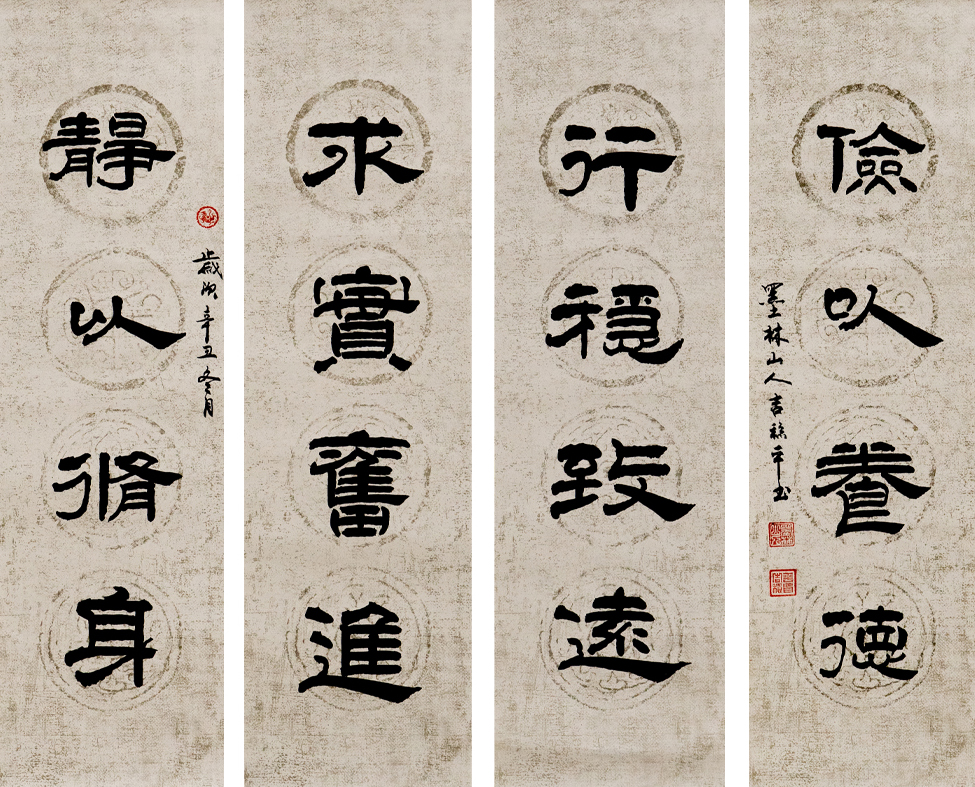 靜以脩身
歲次辛丑冬月
求實奮進
行穩致遠
儉以養德
墨林山人吉平书